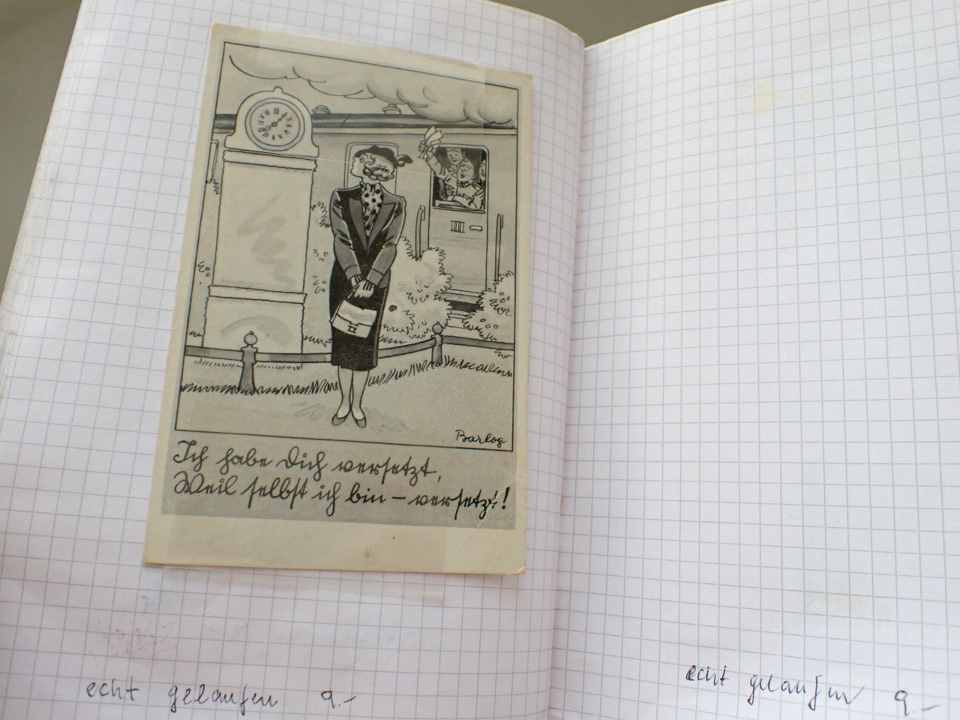 Barlog
Ich habe Dich versetzt,
Weil selbst ich bin – versetzt!
echt gelaufen 9.-
echt gelaufen 9.-